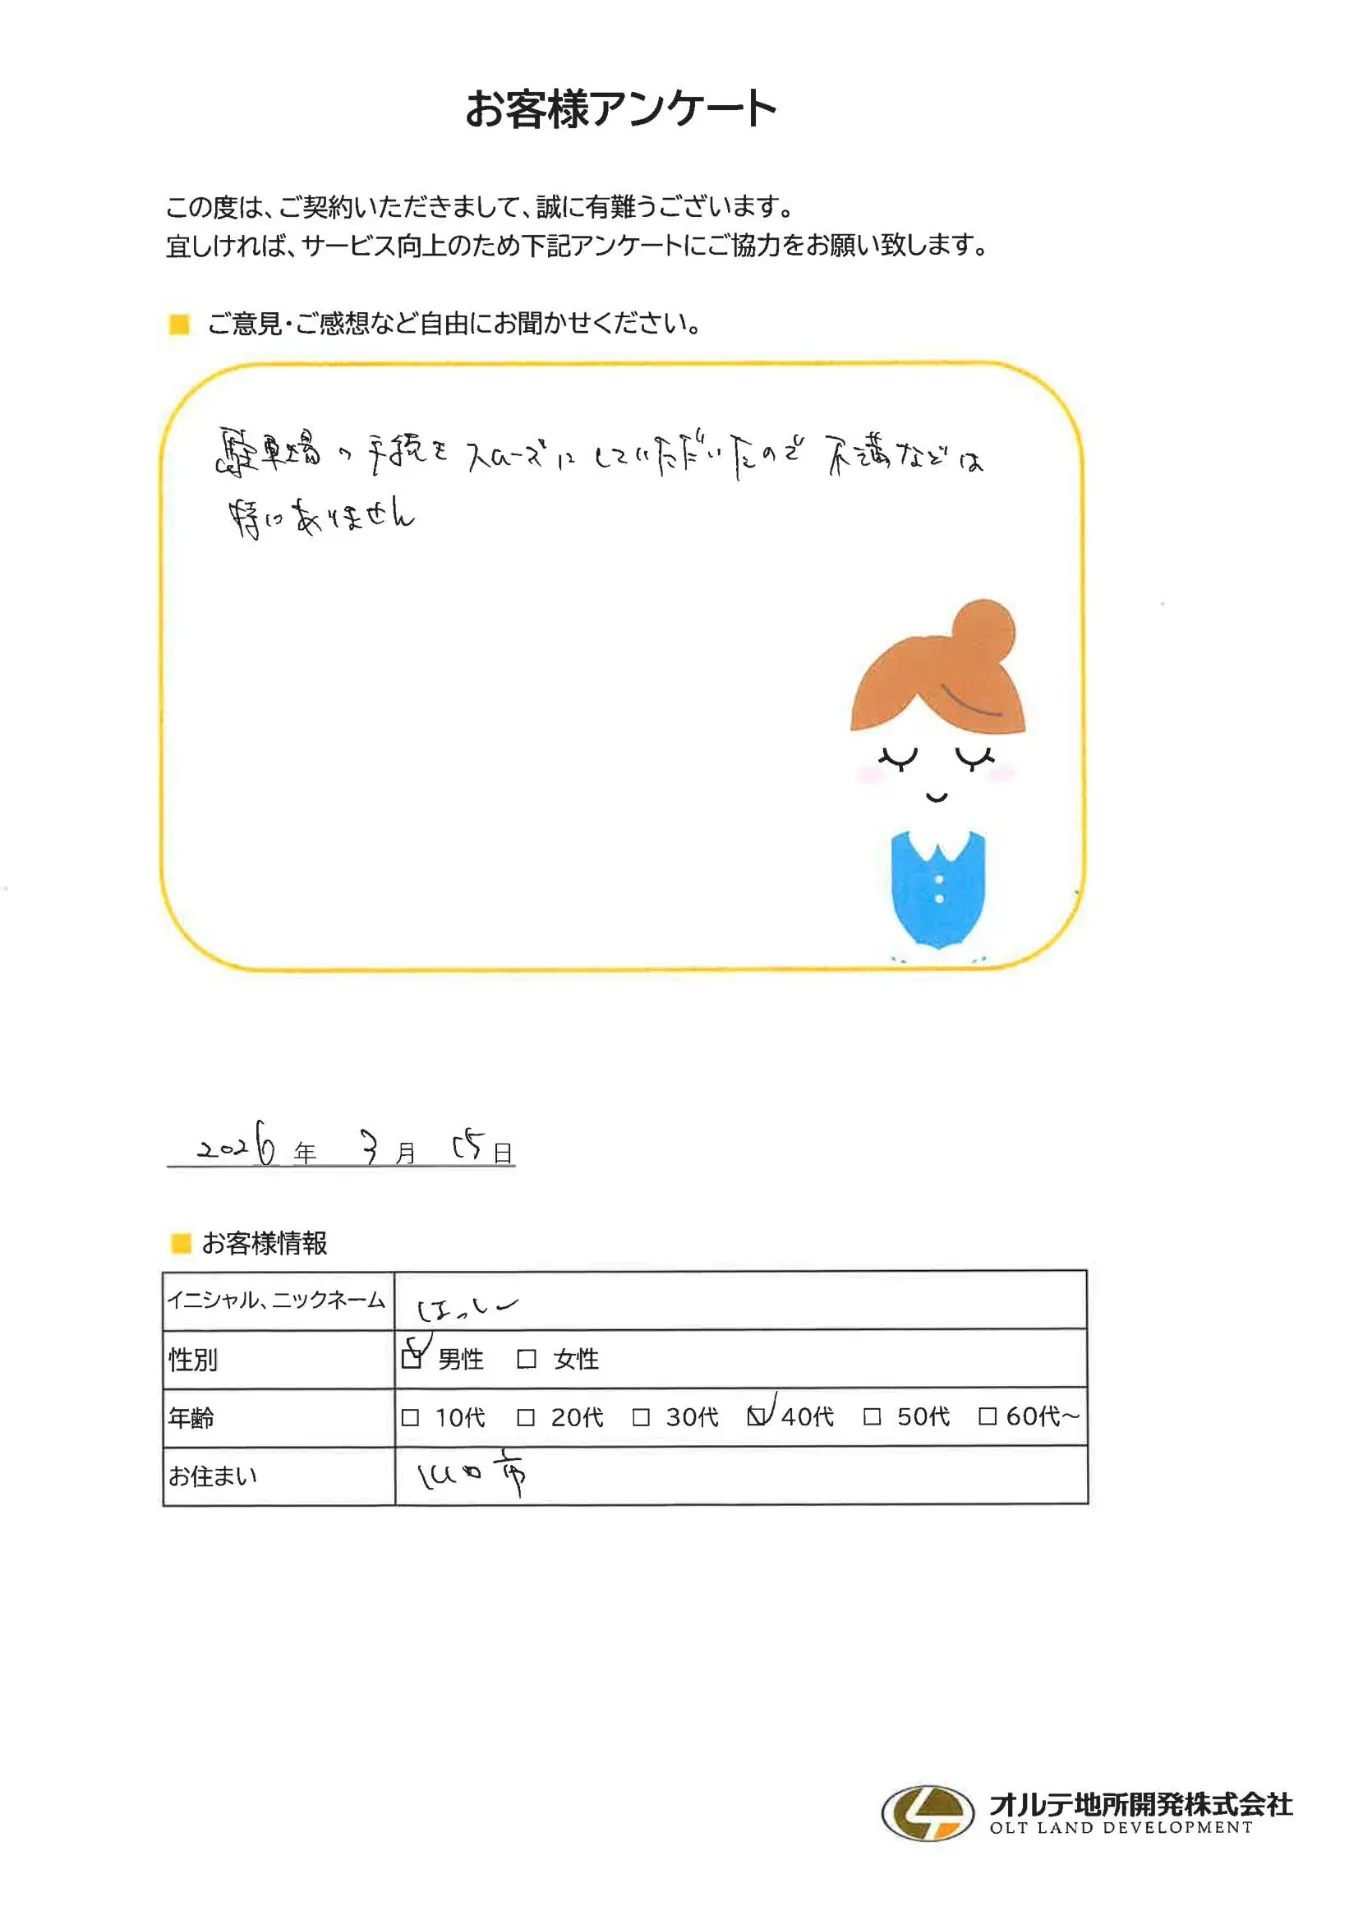 お客様アンケート
この度は、ご契約いただきまして、誠に有難うございます。
宜しければ、サービス向上のため下記アンケートにご協力をお願い致します。
■ ご意見・ご感想など自由にお聞かせください。
駐車場の手続をスムーズにしていただいたので不満などは
特にありません
2026年 3月 15日
■ お客様情報
イニシャル、ニックネーム はっしー
性別 ☑ 男性 □ 女性
年齢 □ 10代 □ 20代 □ 30代 ☑ 40代 □ 50代 □ 60代~
お住まい 川口市
オルテ地所開発株式会社
OLT LAND DEVELOPMENT